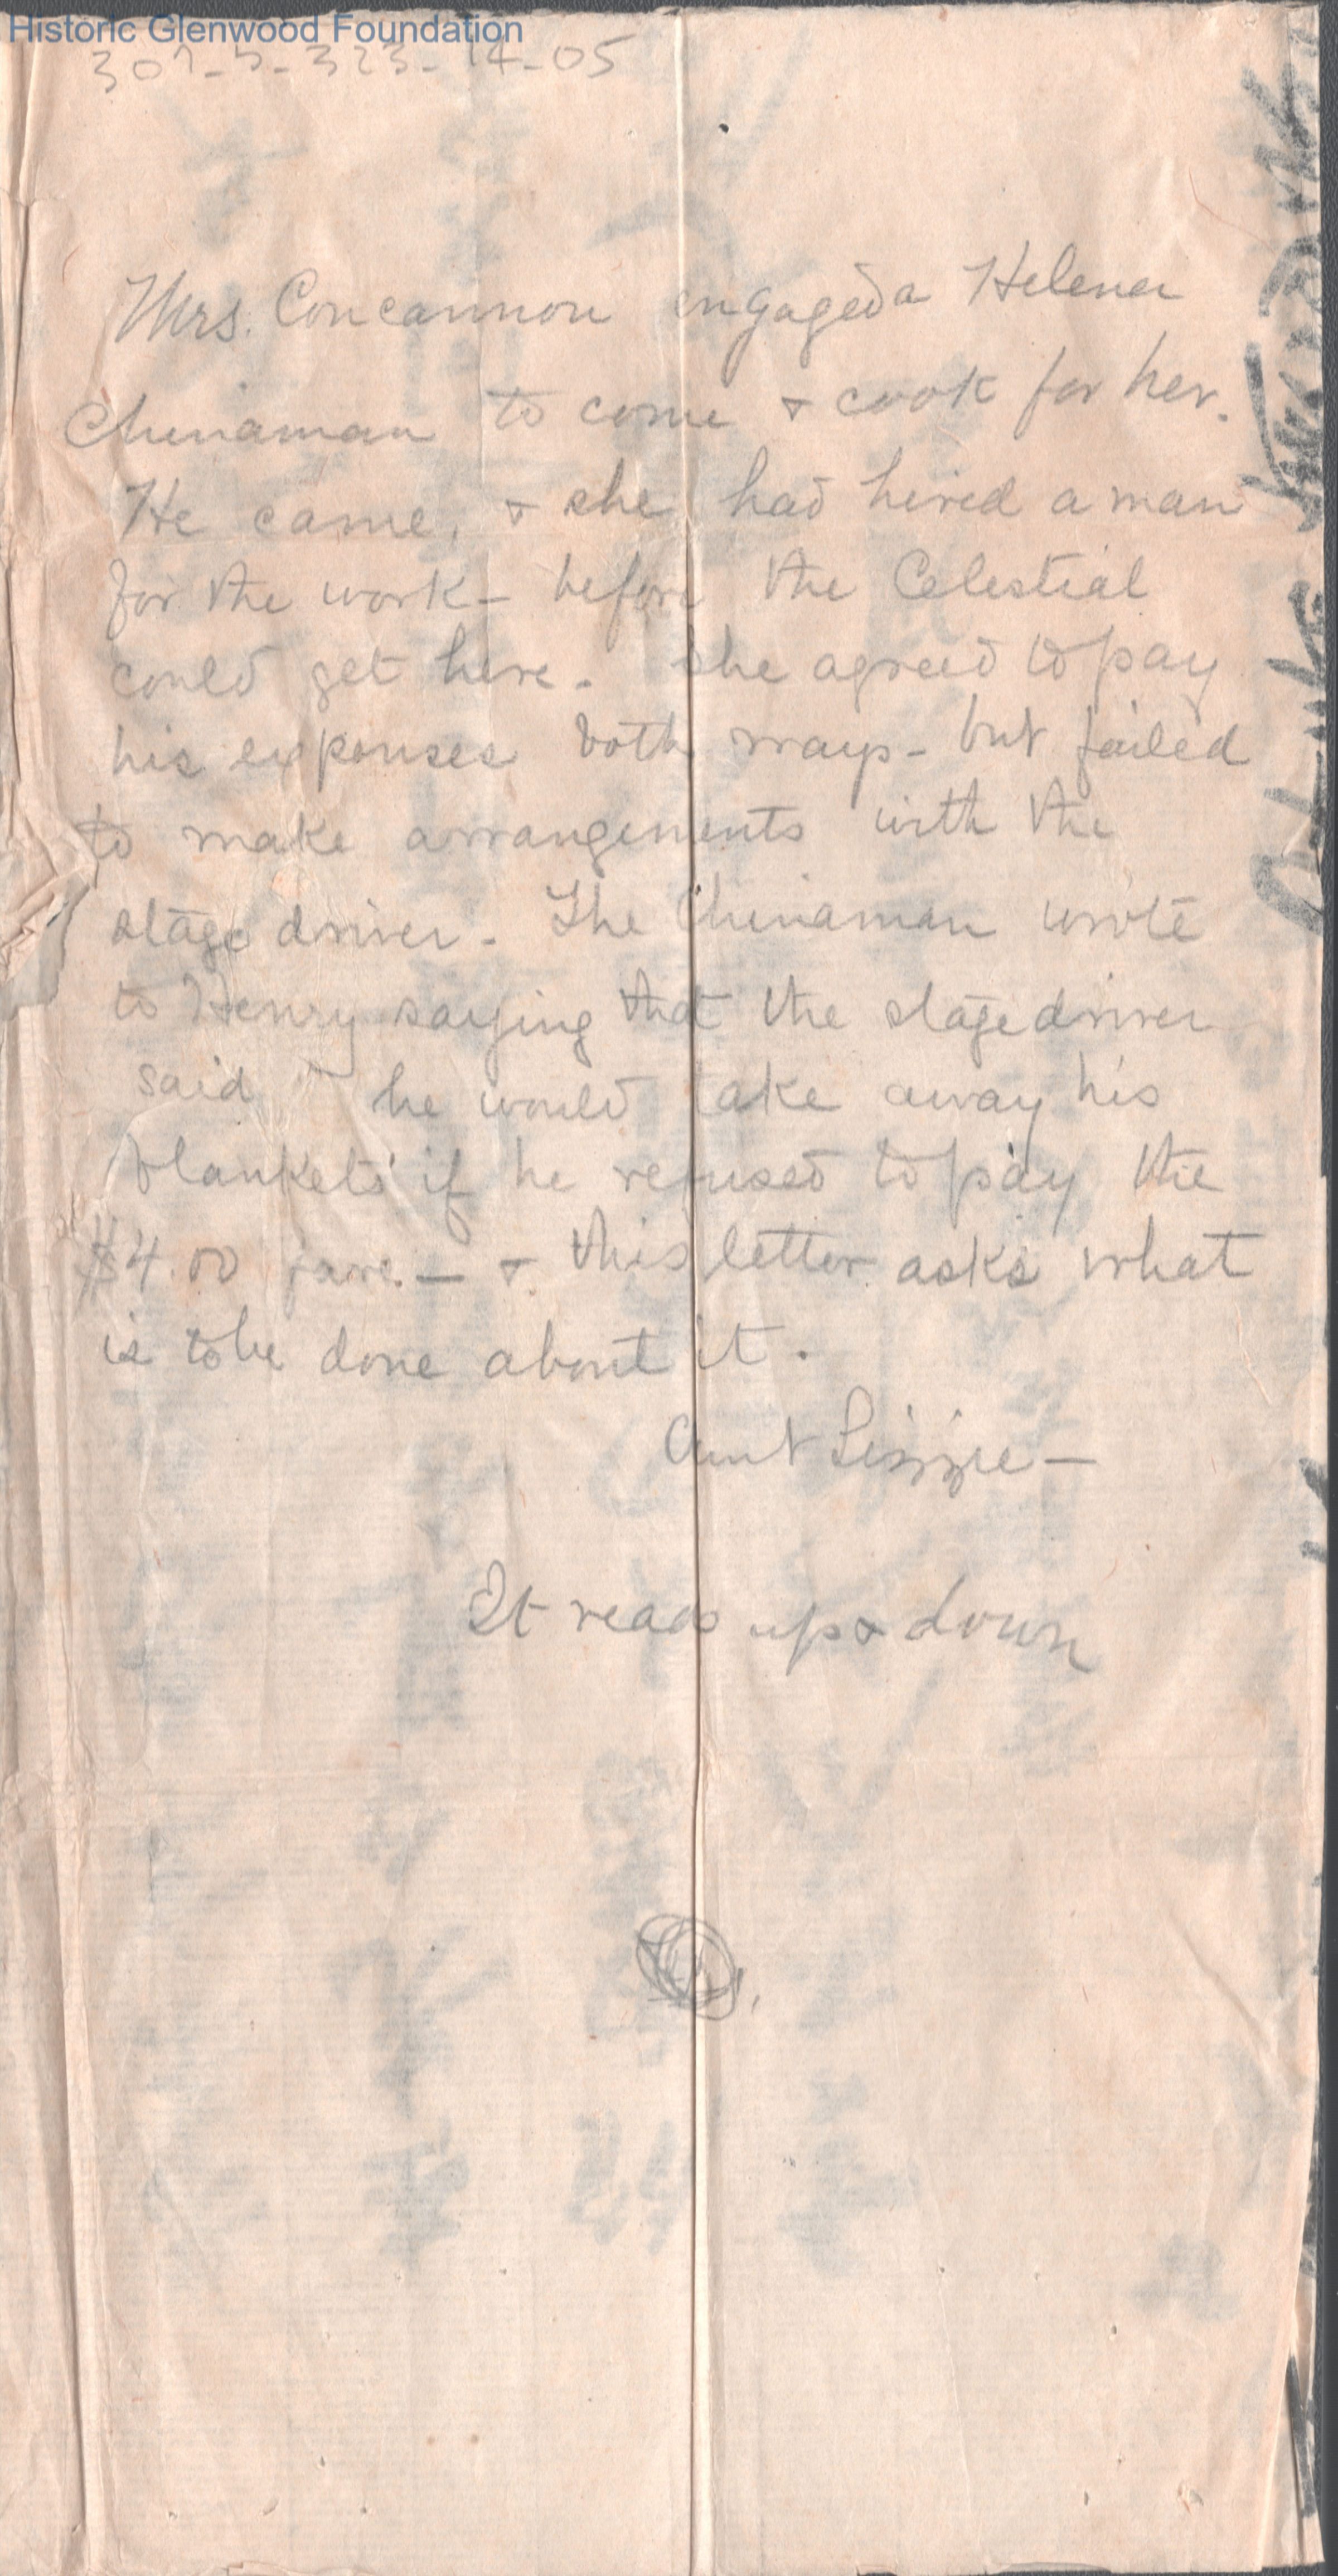 Historic Glenwood Foundation
301-5-323-14-05
Mrs. Concannon engaged a Helena
Chinaman to come & cook for her.
He came, & she had hired a man
for the work - before the Celestial
could get here. She agreed to pay
his expenses both ways - but failed
to make arrangements with the
stage driver - The Chinaman wrote
to Henry saying that the stage driver
said " he would take away his
blankets" if he refused to pay the
$4.00 fare. — & this letter asks what
is to be done about it.
Aunt Lizzie —
It reads up & down